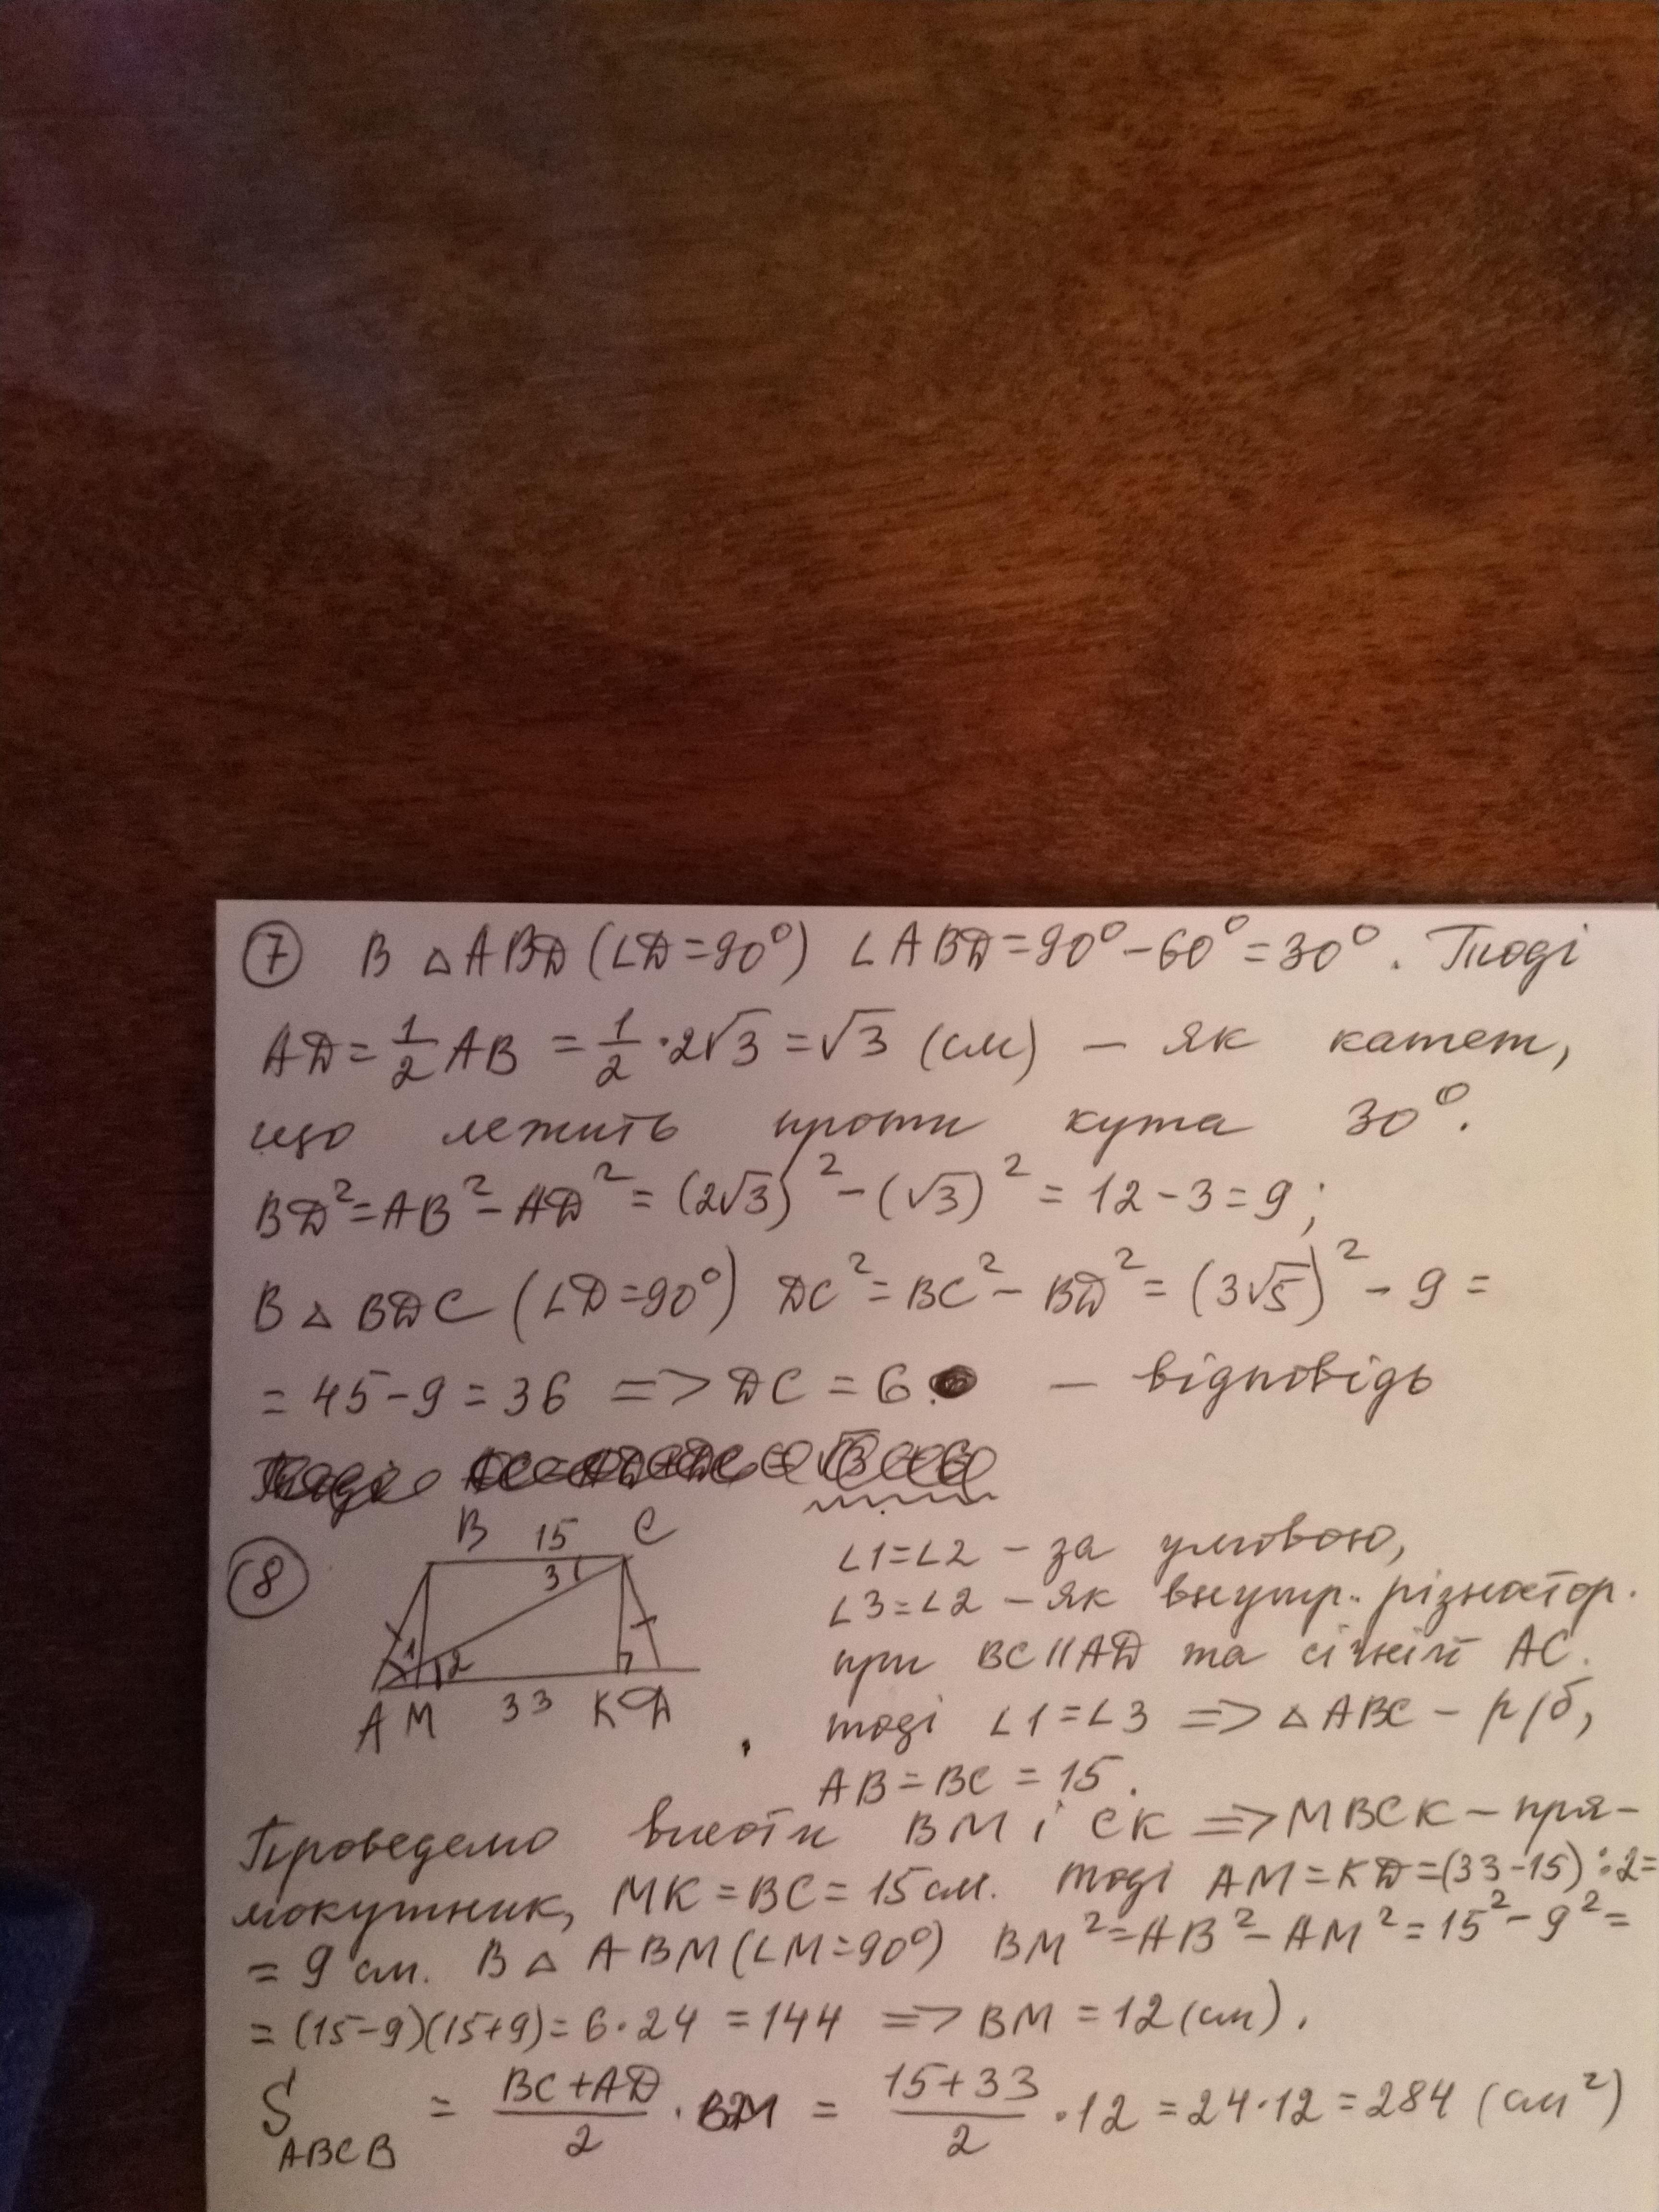 7 В △ABD (∠D=90°) ∠ABD=90°-60°=30°. Тоді
AD=1/2 AB = 1/2 · 2√3 = √3 (см) – як катет,
що лежить проти кута 30°.
BD²=AB²-AD²=(2√3)²-(√3)²=12-3=9;
В △ BDC (∠D=90°) DC²=BC²-BD²=(3√5)²-9=
=45-9=36 => DC=6 – відповідь
8
B 15 C
3
1 2
A M 33 K D
∠1=∠2 – за умовою,
∠3=∠2 – як внутр. різностор.
при BC||AD та січній AC.
тоді ∠1=∠3 => △ABC – р/б,
AB=BC=15.
Проведемо висоти BM і CK => MBCK – пря-
мокутник, MK=BC=15 см. Тоді AM=KD=(33-15):2=
=9 см. В △ ABM (∠M=90°) BM²=AB²-AM²=15²-9²=
=(15-9)(15+9)=6·24=144 => BM=12 (см).
S ABCB = (BC+AD)/2 · BM = (15+33)/2 · 12 = 24·12 = 284 (см²)